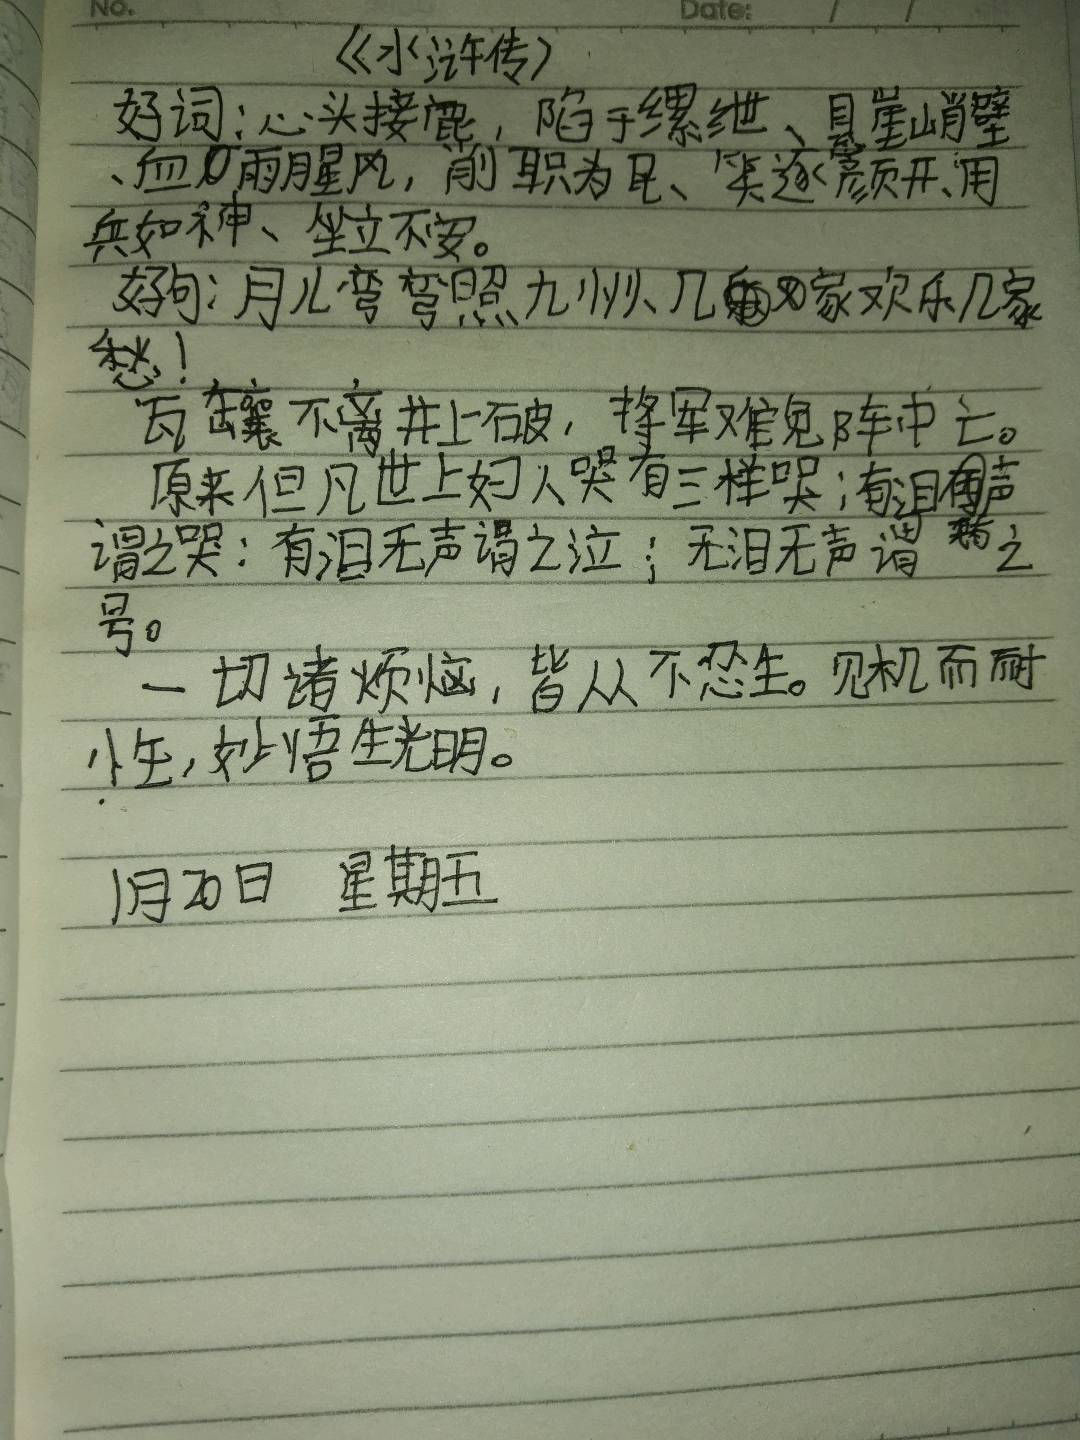 No. Date: / /
《水浒传》
好词：心头接鹿，陷于缧绁、悬崖峭壁
、血雨腥风，削职为民、笑逐颜开、用
兵如神、坐立不安。
好句：月儿弯弯照九州、几家欢乐几家
愁！
瓦罐不离井上破，将军难免阵中亡。
原来但凡世上妇人哭有三样哭；有泪有声
谓之哭：有泪无声谓之泣；无泪无声谓之
号。
一切诸烦恼，皆从不忍生。见机而耐
性，妙悟生光明。
1月20日 星期五